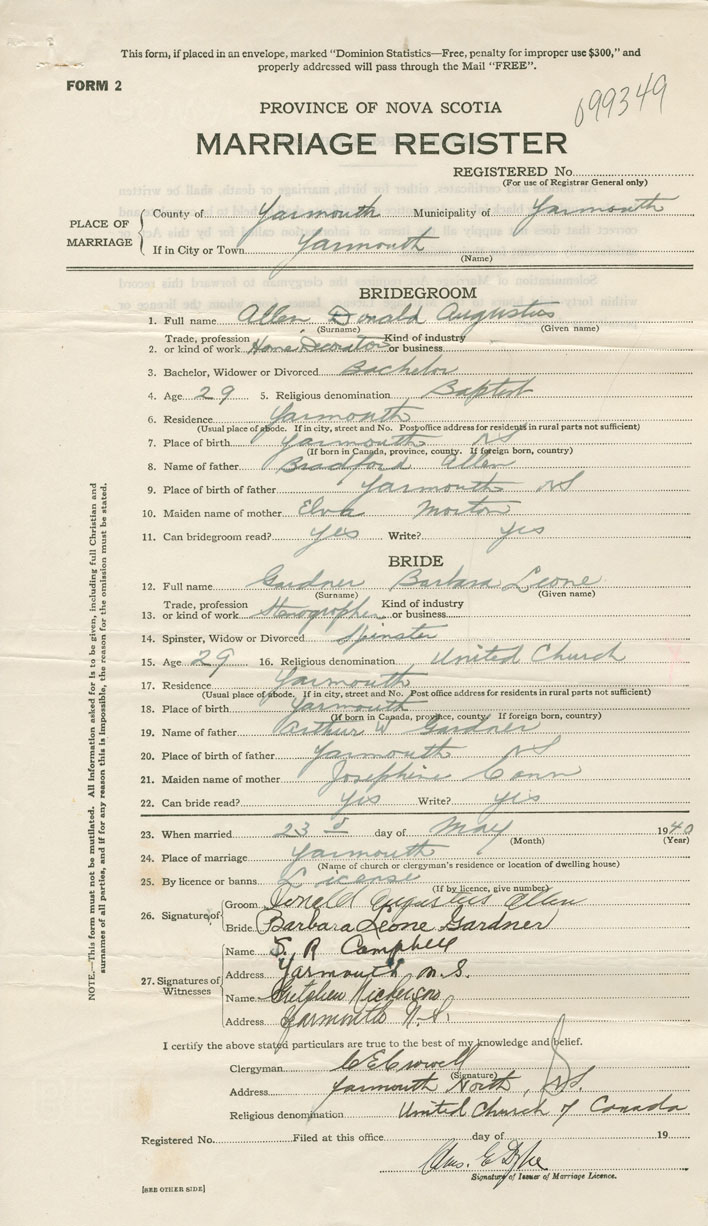 This form, if placed in an envelope, marked "Dominion Statistics—Free, penalty for improper use $300," and
properly addressed will pass through the Mail "FREE".
FORM 2
099349
PROVINCE OF NOVA SCOTIA
MARRIAGE REGISTER
REGISTERED No.
(For use of Registrar General only)
PLACE OF MARRIAGE
County of Yarmouth Municipality of Yarmouth
If in City or Town Yarmouth
(Name)
BRIDEGROOM
1. Full name Allen Donald Augustus
(Surname) (Given name)
Trade, profession Kind of industry
2. or kind of work Home Decorator or business
3. Bachelor, Widower or Divorced Bachelor
4. Age 29 5. Religious denomination Baptist
6. Residence Yarmouth
(Usual place of abode. If in city, street and No. Post office address for residents in rural parts not sufficient)
7. Place of birth Yarmouth NS
(If born in Canada, province, county. If foreign born, country)
8. Name of father Bradford Allen
9. Place of birth of father Yarmouth NS
10. Maiden name of mother Elva Morton
11. Can bridegroom read? yes Write? yes
BRIDE
12. Full name Gardner Barbara Leone
(Surname) (Given name)
Trade, profession Kind of industry
13. or kind of work Stenographer or business
14. Spinster, Widow or Divorced Spinster
15. Age 29 16. Religious denomination United Church
17. Residence Yarmouth
(Usual place of abode. If in city, street and No. Post office address for residents in rural parts not sufficient)
18. Place of birth Yarmouth
(If born in Canada, province, county. If foreign born, country)
19. Name of father Arthur W Gardner
20. Place of birth of father Yarmouth NS
21. Maiden name of mother Josephine Cann
22. Can bride read? yes Write? yes
23. When married 23 d day of May 1940
(Month) (Year)
24. Place of marriage Yarmouth
(Name of church or clergyman's residence or location of dwelling house)
25. By licence or banns License
(If by licence, give number)
26. Signature of Groom Donald Augustus Allen
Bride Barbara Leone Gardner
27. Signatures of Witnesses
Name S. R Campbell
Address Yarmouth N.S.
Name Gretchen Nickerson
Address Yarmouth N.S.
I certify the above stated particulars are true to the best of my knowledge and belief.
Clergyman C E Crowell
(Signature)
Address Yarmouth North, NS
Religious denomination United Church of Canada
Registered No. Filed at this office day of 19
Chas. E
Signature of Issuer of Marriage Licence.
[SEE OTHER SIDE]
NOTE.—This form must not be mutilated. All information asked for is to be given, including full Christian and
surnames of all parties, and if for any reason this is impossible, the reason for the omission must be stated.